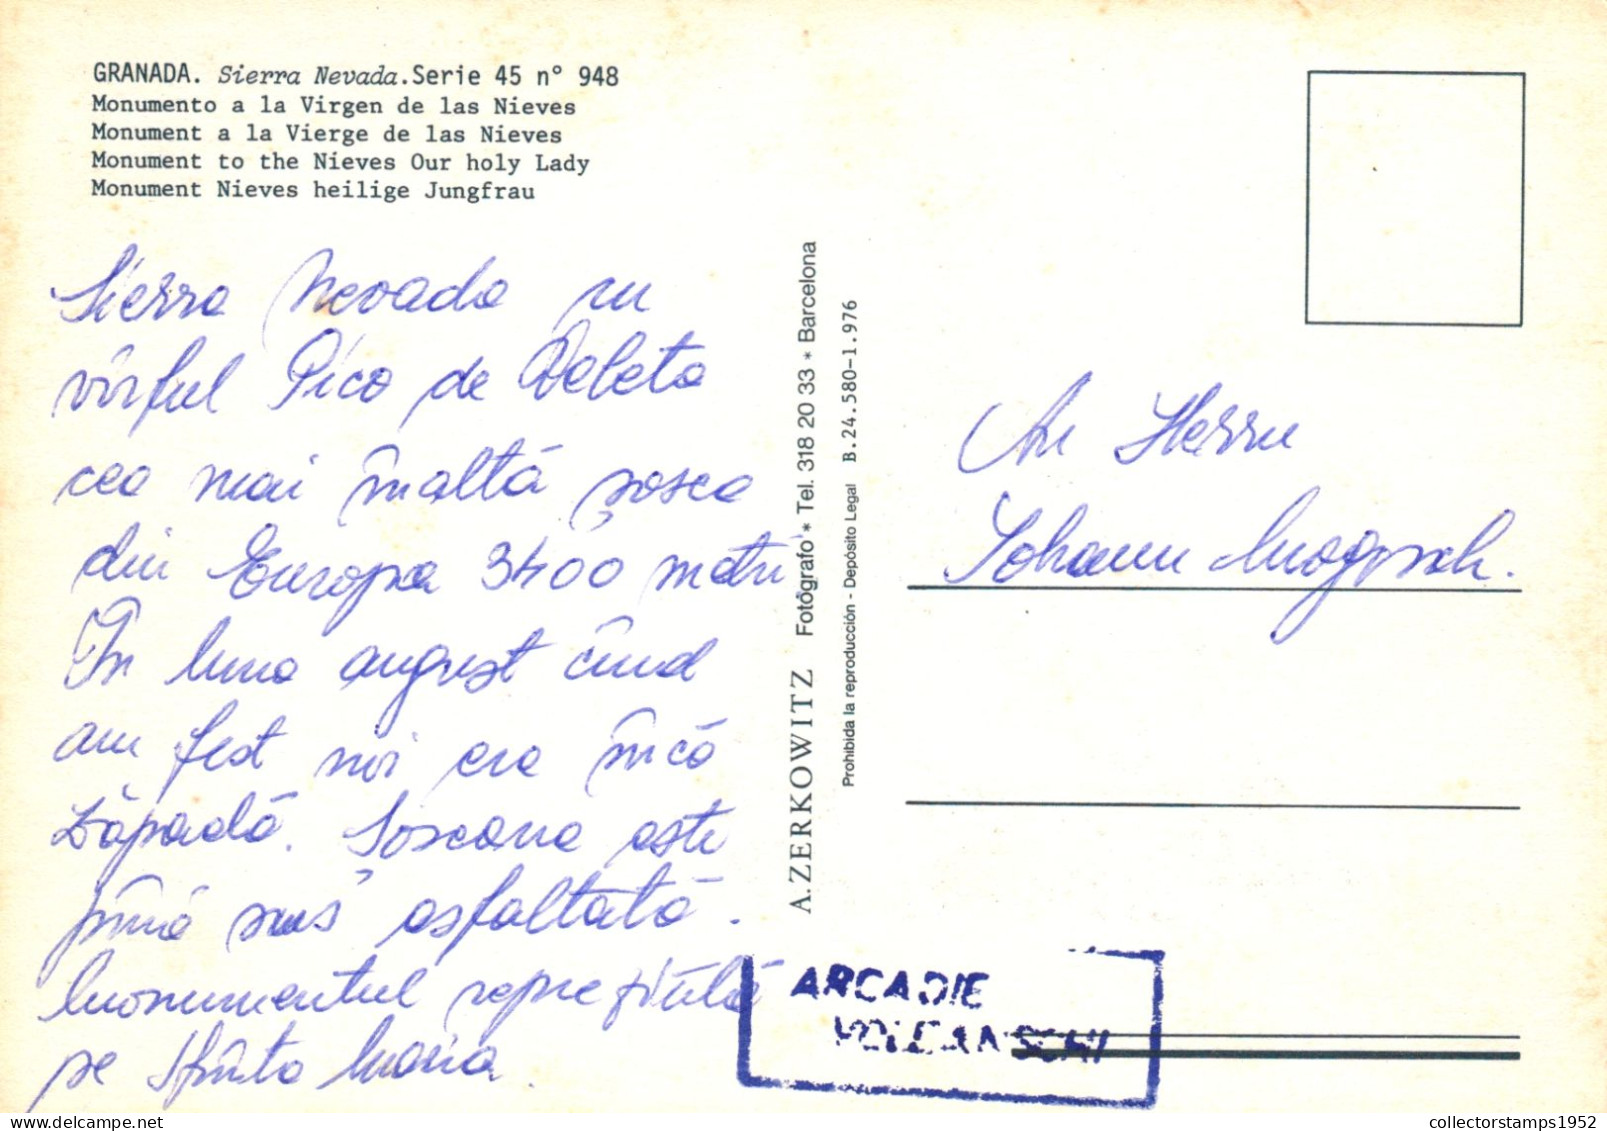 GRANADA. Sierra Nevada.Serie 45 n° 948
Monumento a la Virgen de las Nieves
Monument a la Vierge de las Nieves
Monument to the Nieves Our holy Lady
Monument Nieves heilige Jungfrau
Sierra Nevada cu
vîrful Pico de Veleta
cea mai înaltă șosea
din Europa 3400 metri
În luna august cînd
am fost noi era încă
zăpadă. Șoseaua este
pînă sus asfaltată.
Monumentul reprezintă
pe Sfînta Maria.
A. ZERKOWITZ Fotógrafo * Tel. 318 20 33 * Barcelona
Prohibida la reproducción - Depósito Legal B.24.580-1.976
An Herrn
Johann
ARCADIE
collectorstamps1952